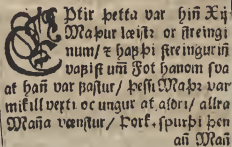 EPtir þetta var hiñ Xij
Maþur læistr or streingi
num/ ⁊ hafþi streingurin
vafist um̃ Fot hanom sva
at hañ var fastur/ þessi Maþr var
mikill vexti oc ungur at aldri/ allra
Maña vænstur/ Þork. spurþi þen
añ Mañ